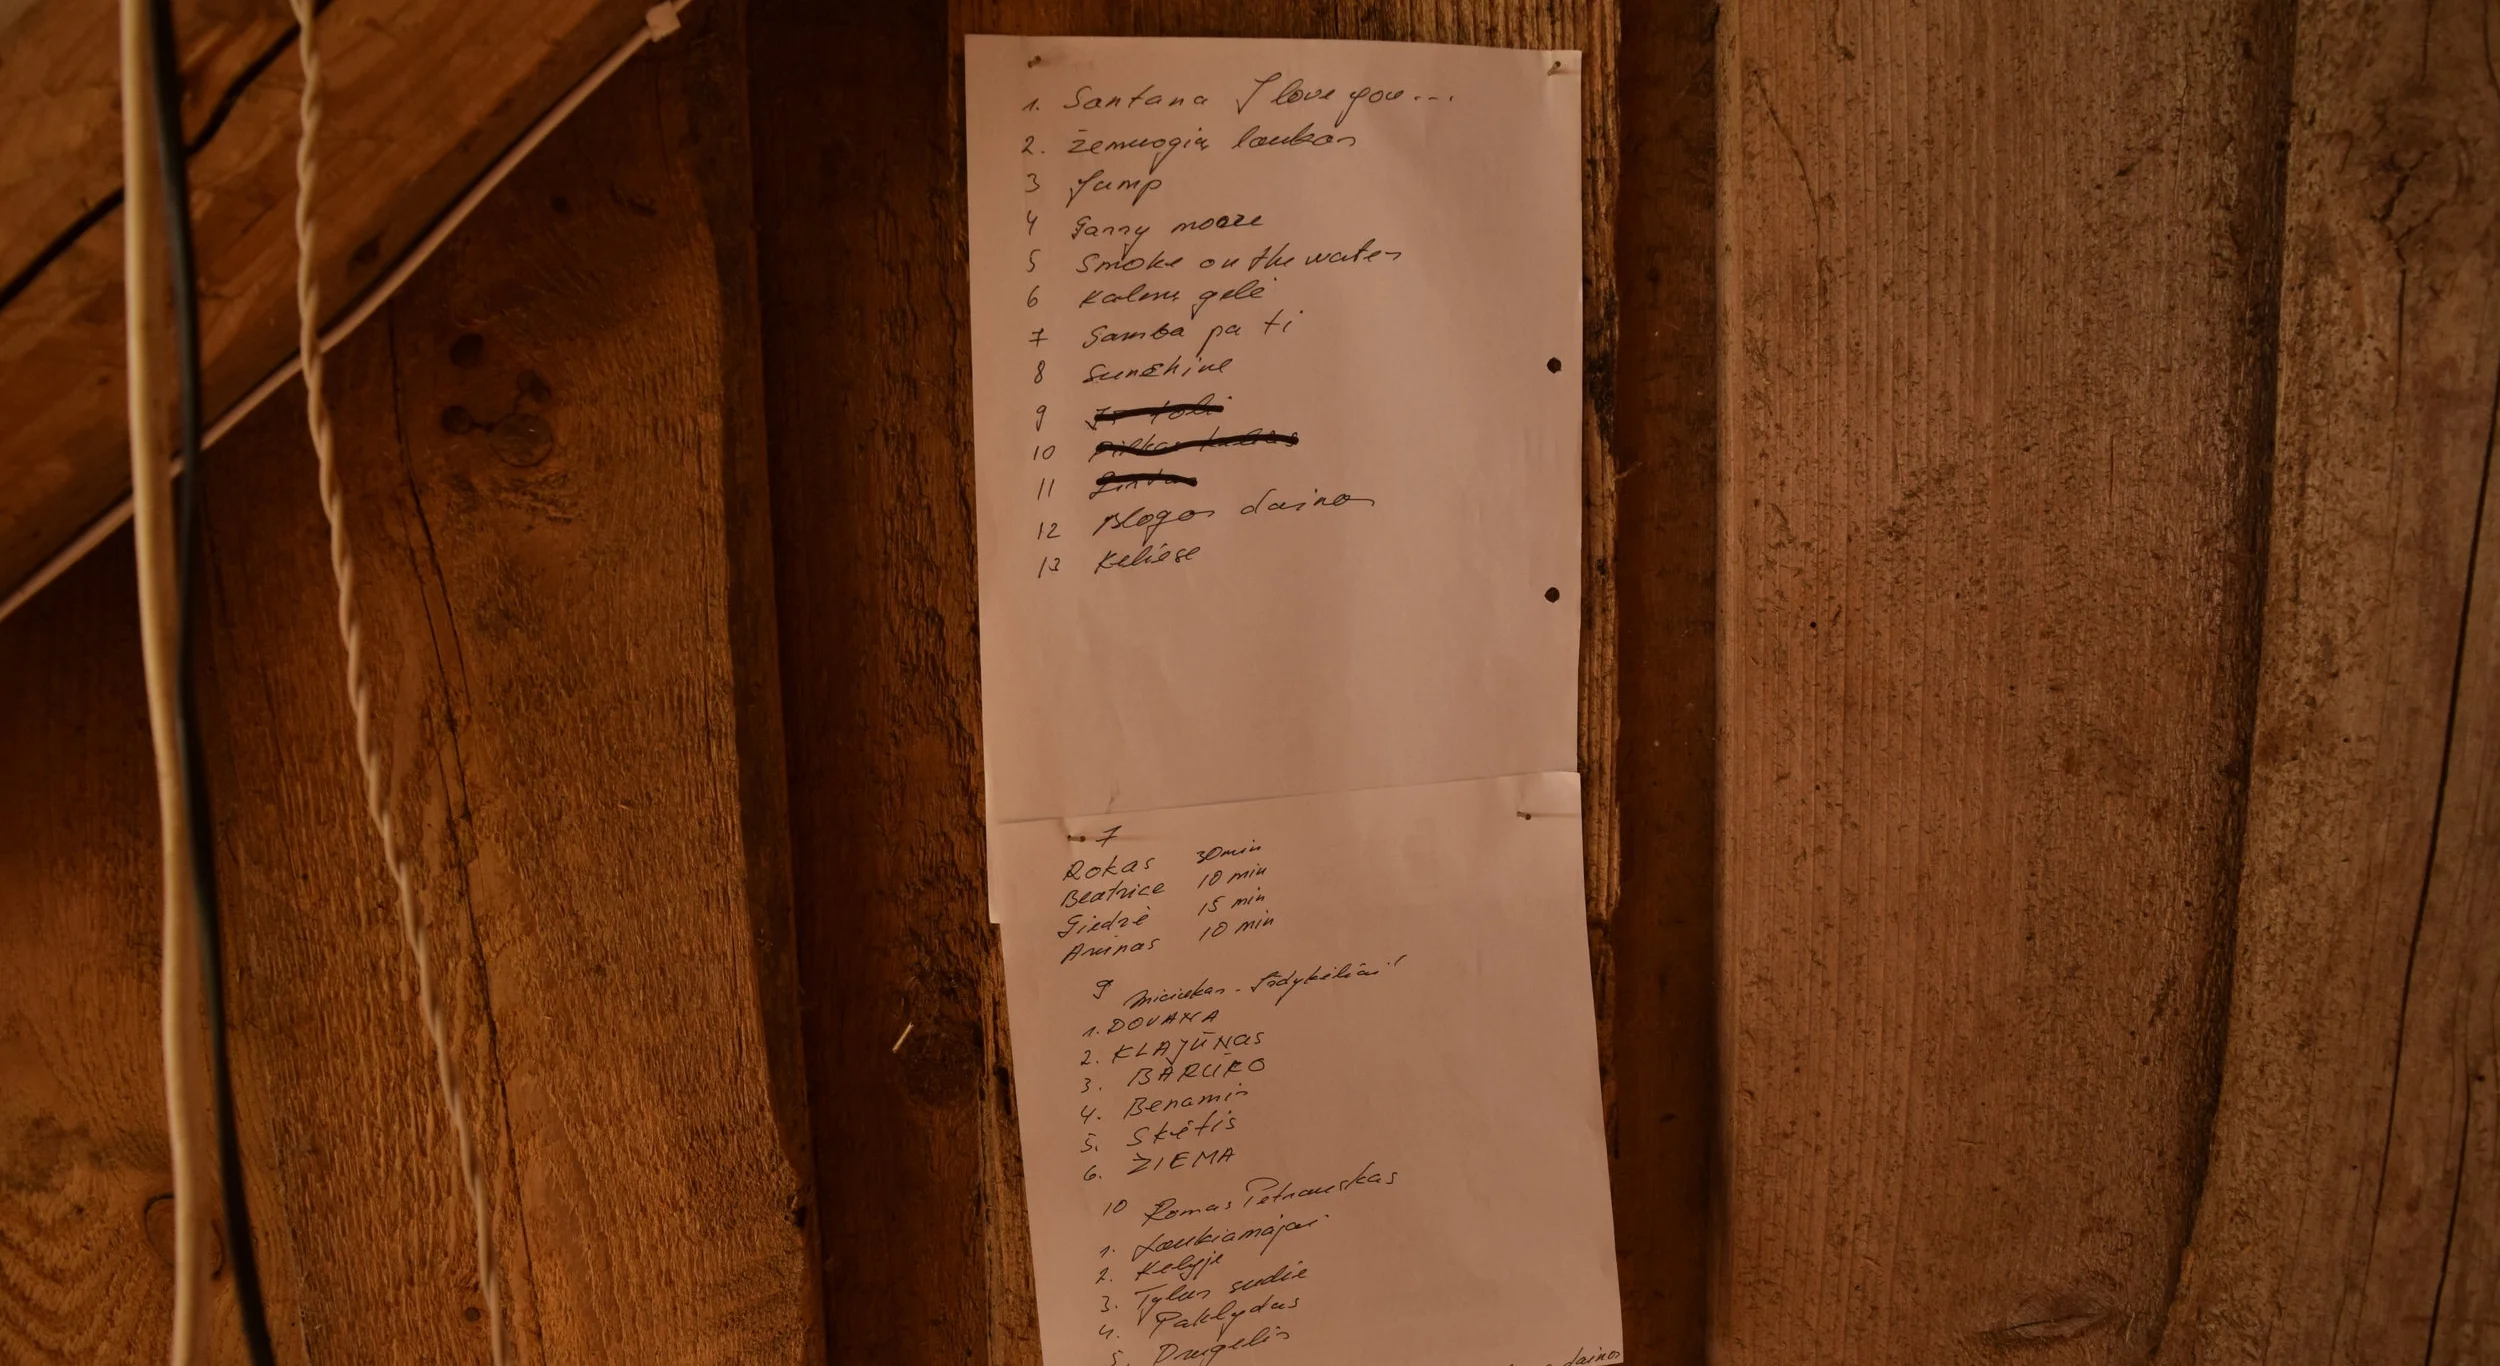 1. Santana I love you...
2. Žemuogių laukas
3 Jump
4 Garry moore
5 Smoke on the water
6 Kalnų gėlė
7 Samba pa ti
8 Sunshine
9
10
11
12 Blogos dainos
13 Keliese
7
Rokas 30min
Beatrice 10 min
Giedrė 15 min
Arūnas 10 min
9
1. DOVANA
2. KLAJŪNAS
3. BARUKO
4. Benamis
5. Skėtis
6. ŽIEMA
10 Romas Petrauskas
1. Laukiamajai
2. Kelyje
3. Tylus sudie
4. Paklydus
5. Drugelis
dainos